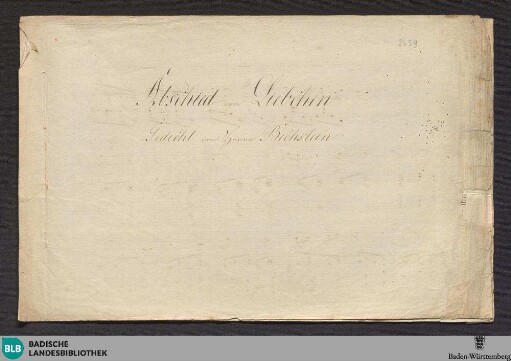 Abschied vom Liebchen
Gedicht von Herrn Bechstein
BLB
BADISCHE
LANDESBIBLIOTHEK
Baden-Württemberg